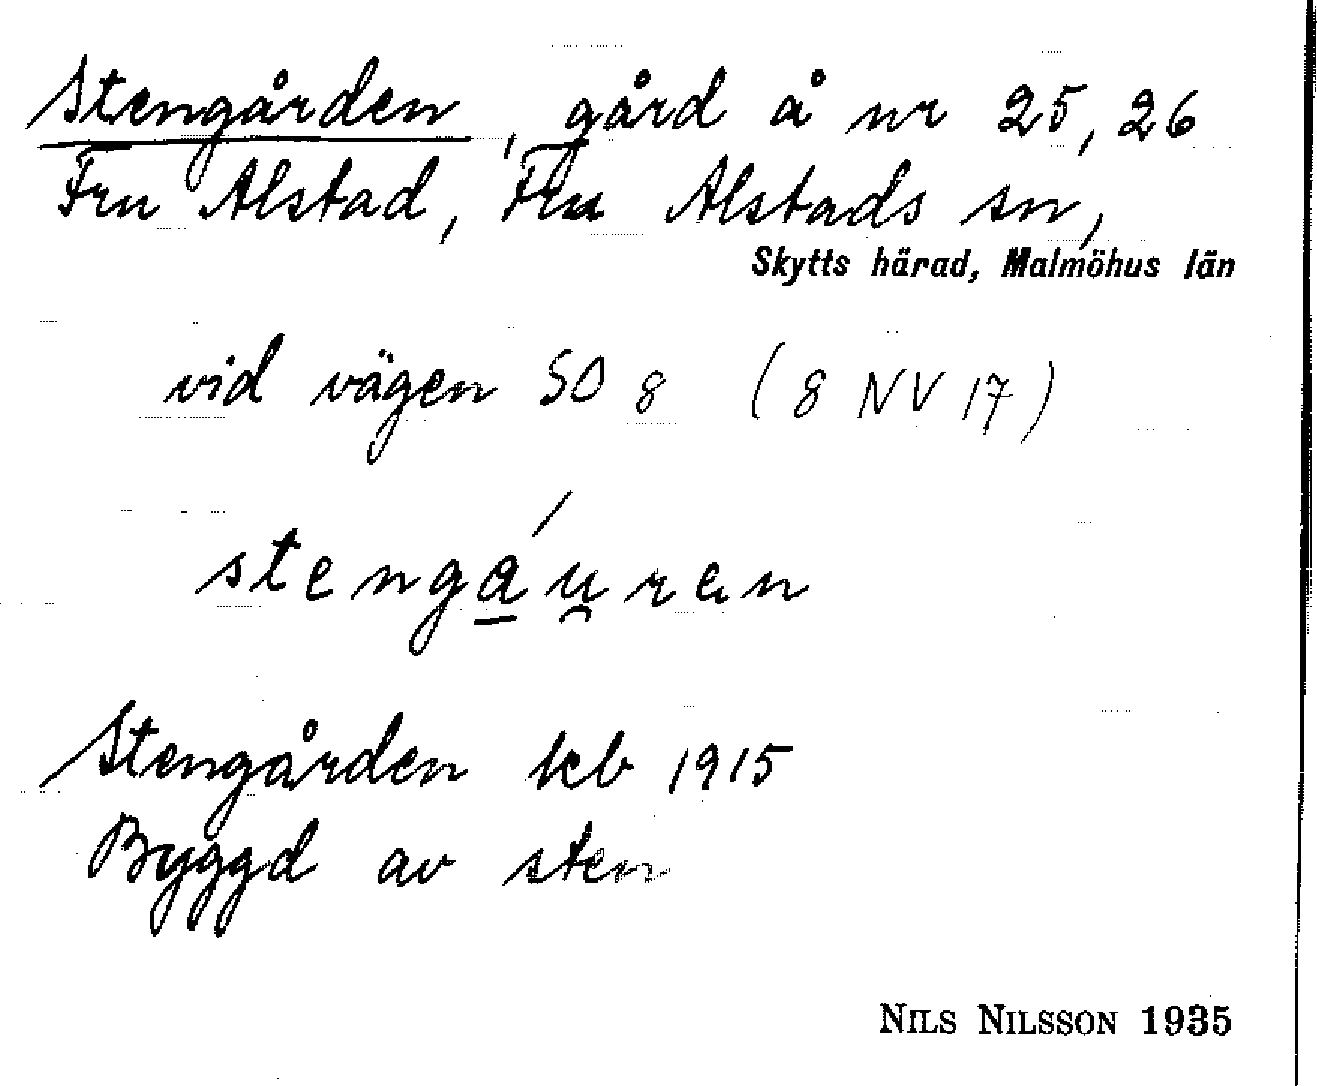 Stengården, gård å nr 25, 26
Fru Alstad, Fru Alstads sn,
Skytts härad, Malmöhus län
vid vägen SO 8 (8 NV 17)
stenga̱´u̯ren
Stengården kb 1915
Byggd av sten
NILS NILSSON 1935